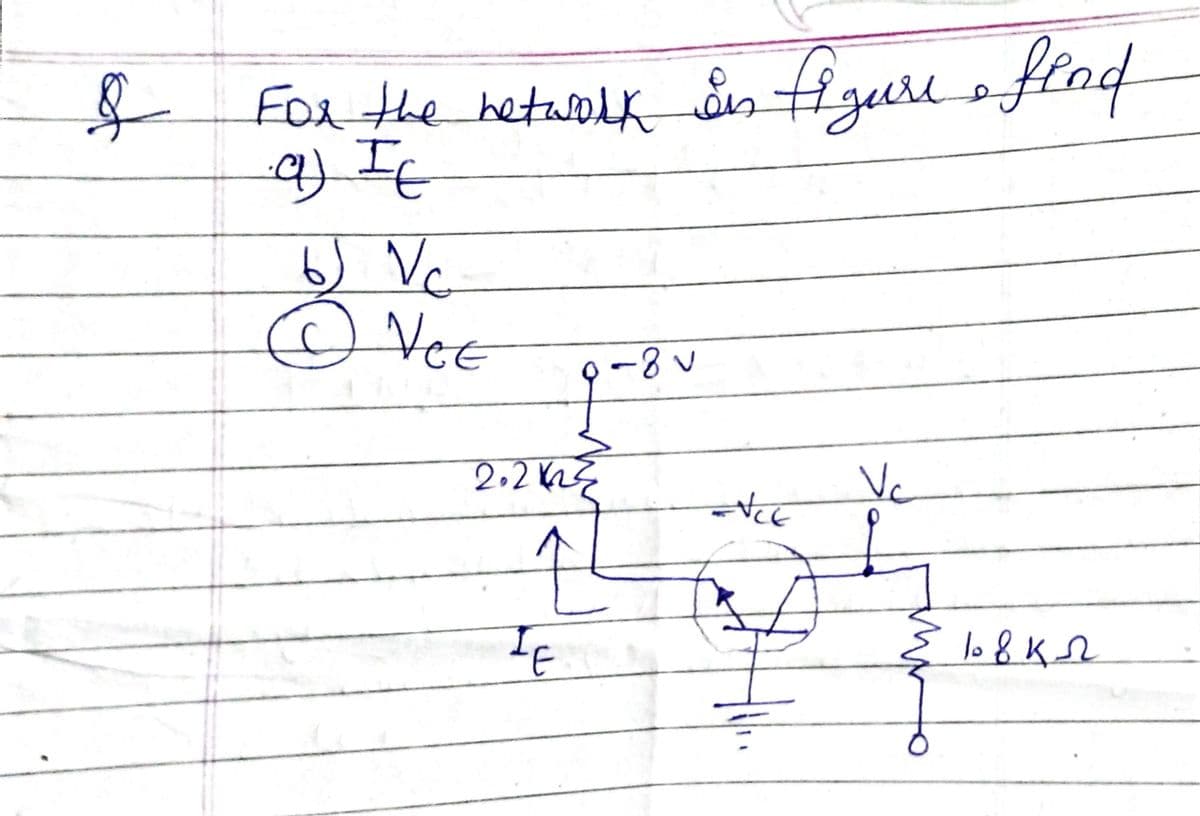 Q For the network in figure, find
a) IE
b) Vc
(c) VCE
-8 V
2.2 KΩ
-VCE
Vc
IE
1.8 KΩ